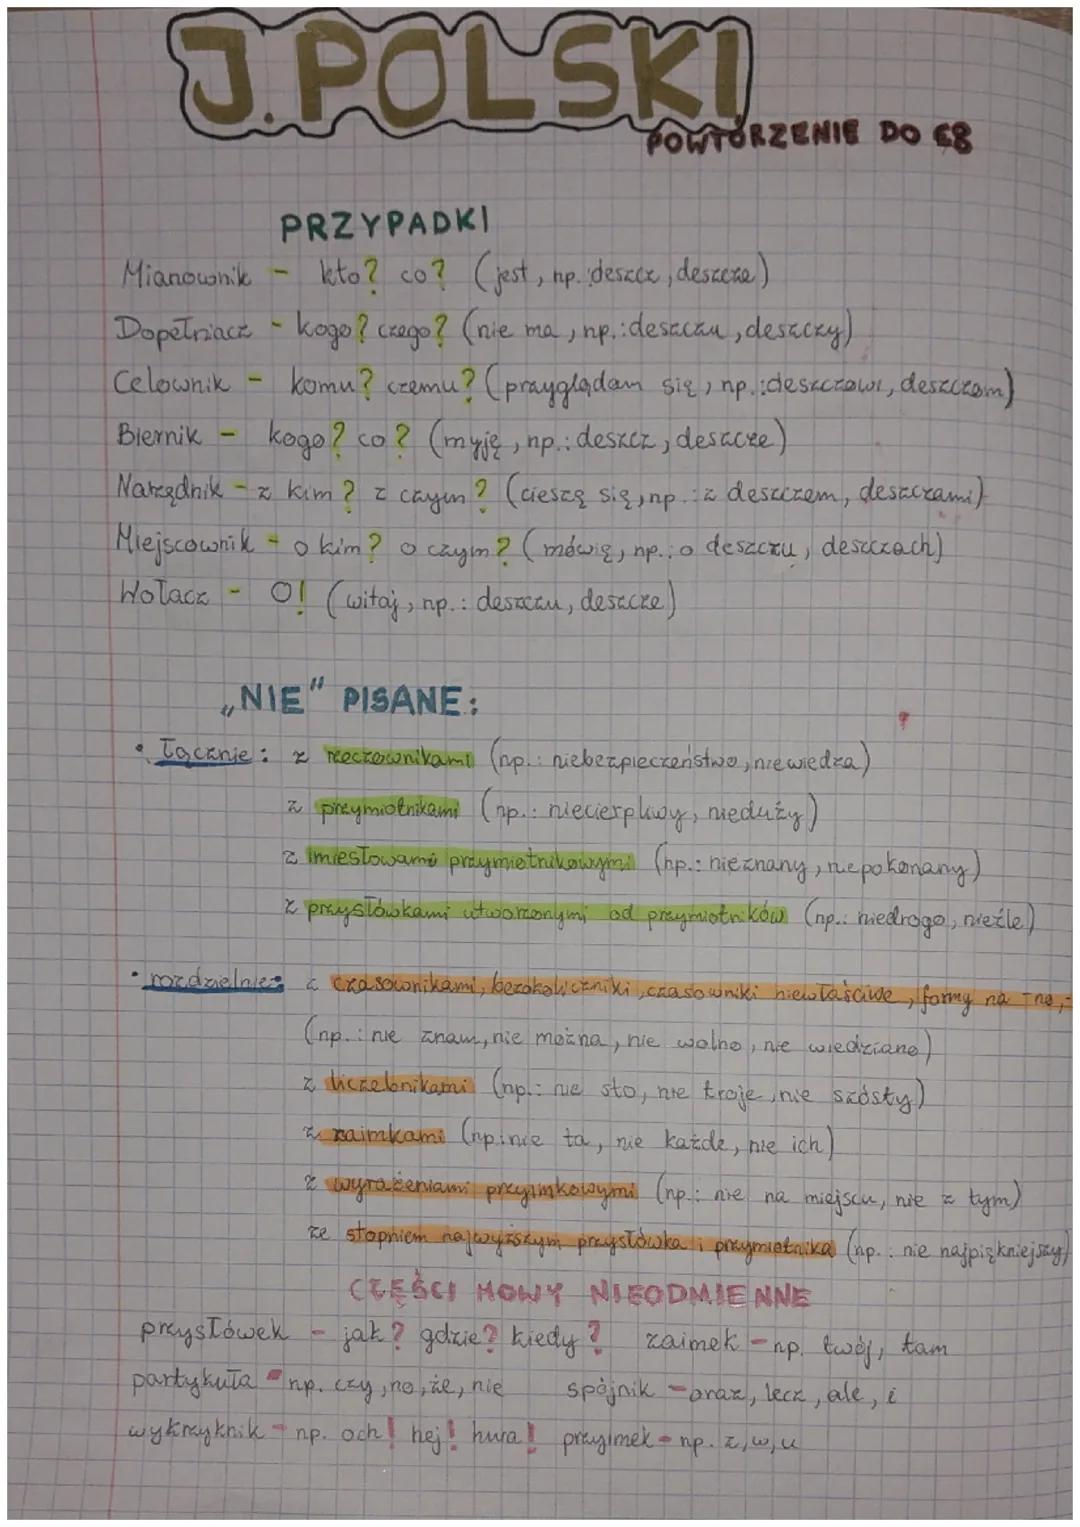 J. POLSKI
POWTÓRZENIE DO E8
PRZYPADKI
Mianownik - kto? co? (jest, np. deszcz, deszcze)
Dopełniacz - kogo? czego? (nie ma, np.: deszczu, deszczy)
Celownik - komu? czemu? (przyglądam się, np.: deszczowi, deszczom)
Biernik - kogo? co? (myję, np.: deszcz, deszcze)
Narzędnik - z kim? z czym? (cieszę się, np.: z deszczem, deszczami)
Miejscownik - o kim? o czym? (mówię, np.: o deszczu, deszczach)
Wołacz - O! (witaj, np.: deszczu, deszcze)
„NIE" PISANE:
• Łącznie: z rzeczownikami (np.: niebezpieczeństwo, niewiedza)
z przymiotnikami (np.: niecierpliwy, nieduży)
z imiesłowami przymiotnikowymi (np.: nieznany, niepokonany)
z przysłówkami utworzonymi od przymiotników (np.: niedrogo, nieźle)
• rozdzielnie: z czasownikami, bezokoliczniki, czasowniki niewłaściwe, formy na -no, -
(np.: nie znam, nie można, nie wolno, nie wiedziano)
z liczebnikami (np.: nie sto, nie troje, nie szósty)
z zaimkami (np.: nie ta, nie każde, nie ich)
z wyrażeniami przyimkowymi (np.: nie na miejscu, nie z tym)
ze stopniem najwyższym przysłówka i przymiotnika (np.: nie najpiękniejszy)
CZĘŚCI MOWY NIEODMIENNE
przysłówek - jak? gdzie? kiedy? zaimek - np. twój, tam
partykuła - np. czy, no, że, nie spójnik - oraz, lecz, ale, i
wykrzyknik - np. och! hej! hura! przyimek - np. z, w, u